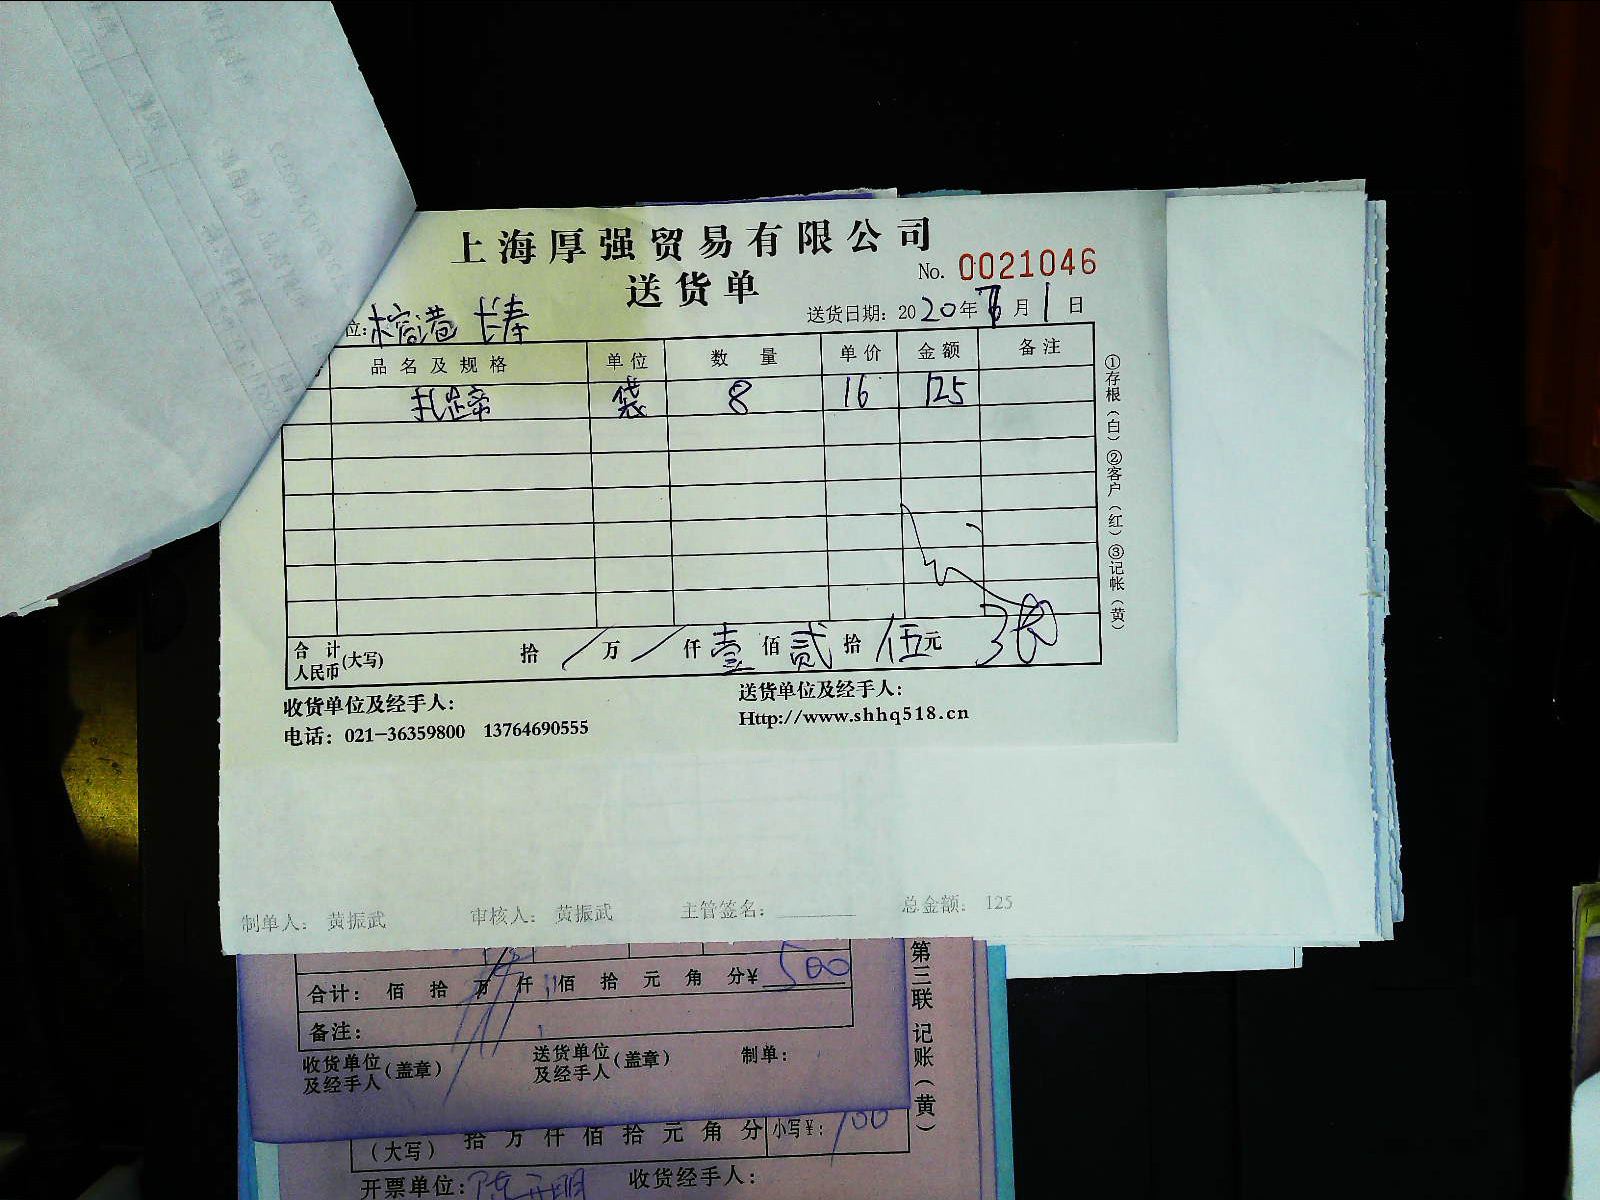 上海厚强贸易有限公司
送货单
No. 0021046
位: 榕港 长寿
送货日期: 2020年6月1日
品名及规格 单位 数量 单价 金额 备注
扎啤帝 袋 8 16 125
合计人民币(大写) 拾 / 万 / 仟 壹 佰 贰 拾 伍 元
收货单位及经手人:
送货单位及经手人:
电话: 021-36359800 13764690555
Http://www.shhq518.cn
①存根(白) ②客户(红) ③记帐(黄)
制单人: 黄振武 审核人: 黄振武 主管签名: 总金额: 125
合计: 佰 拾 万 仟 佰 拾 元 角 分¥ 500
备注:
收货单位及经手人(盖章) 送货单位及经手人(盖章) 制单:
第三联 记账(黄)
(大写) 拾 万 仟 佰 拾 元 角 分 小写¥: 100
开票单位: 收货经手人: